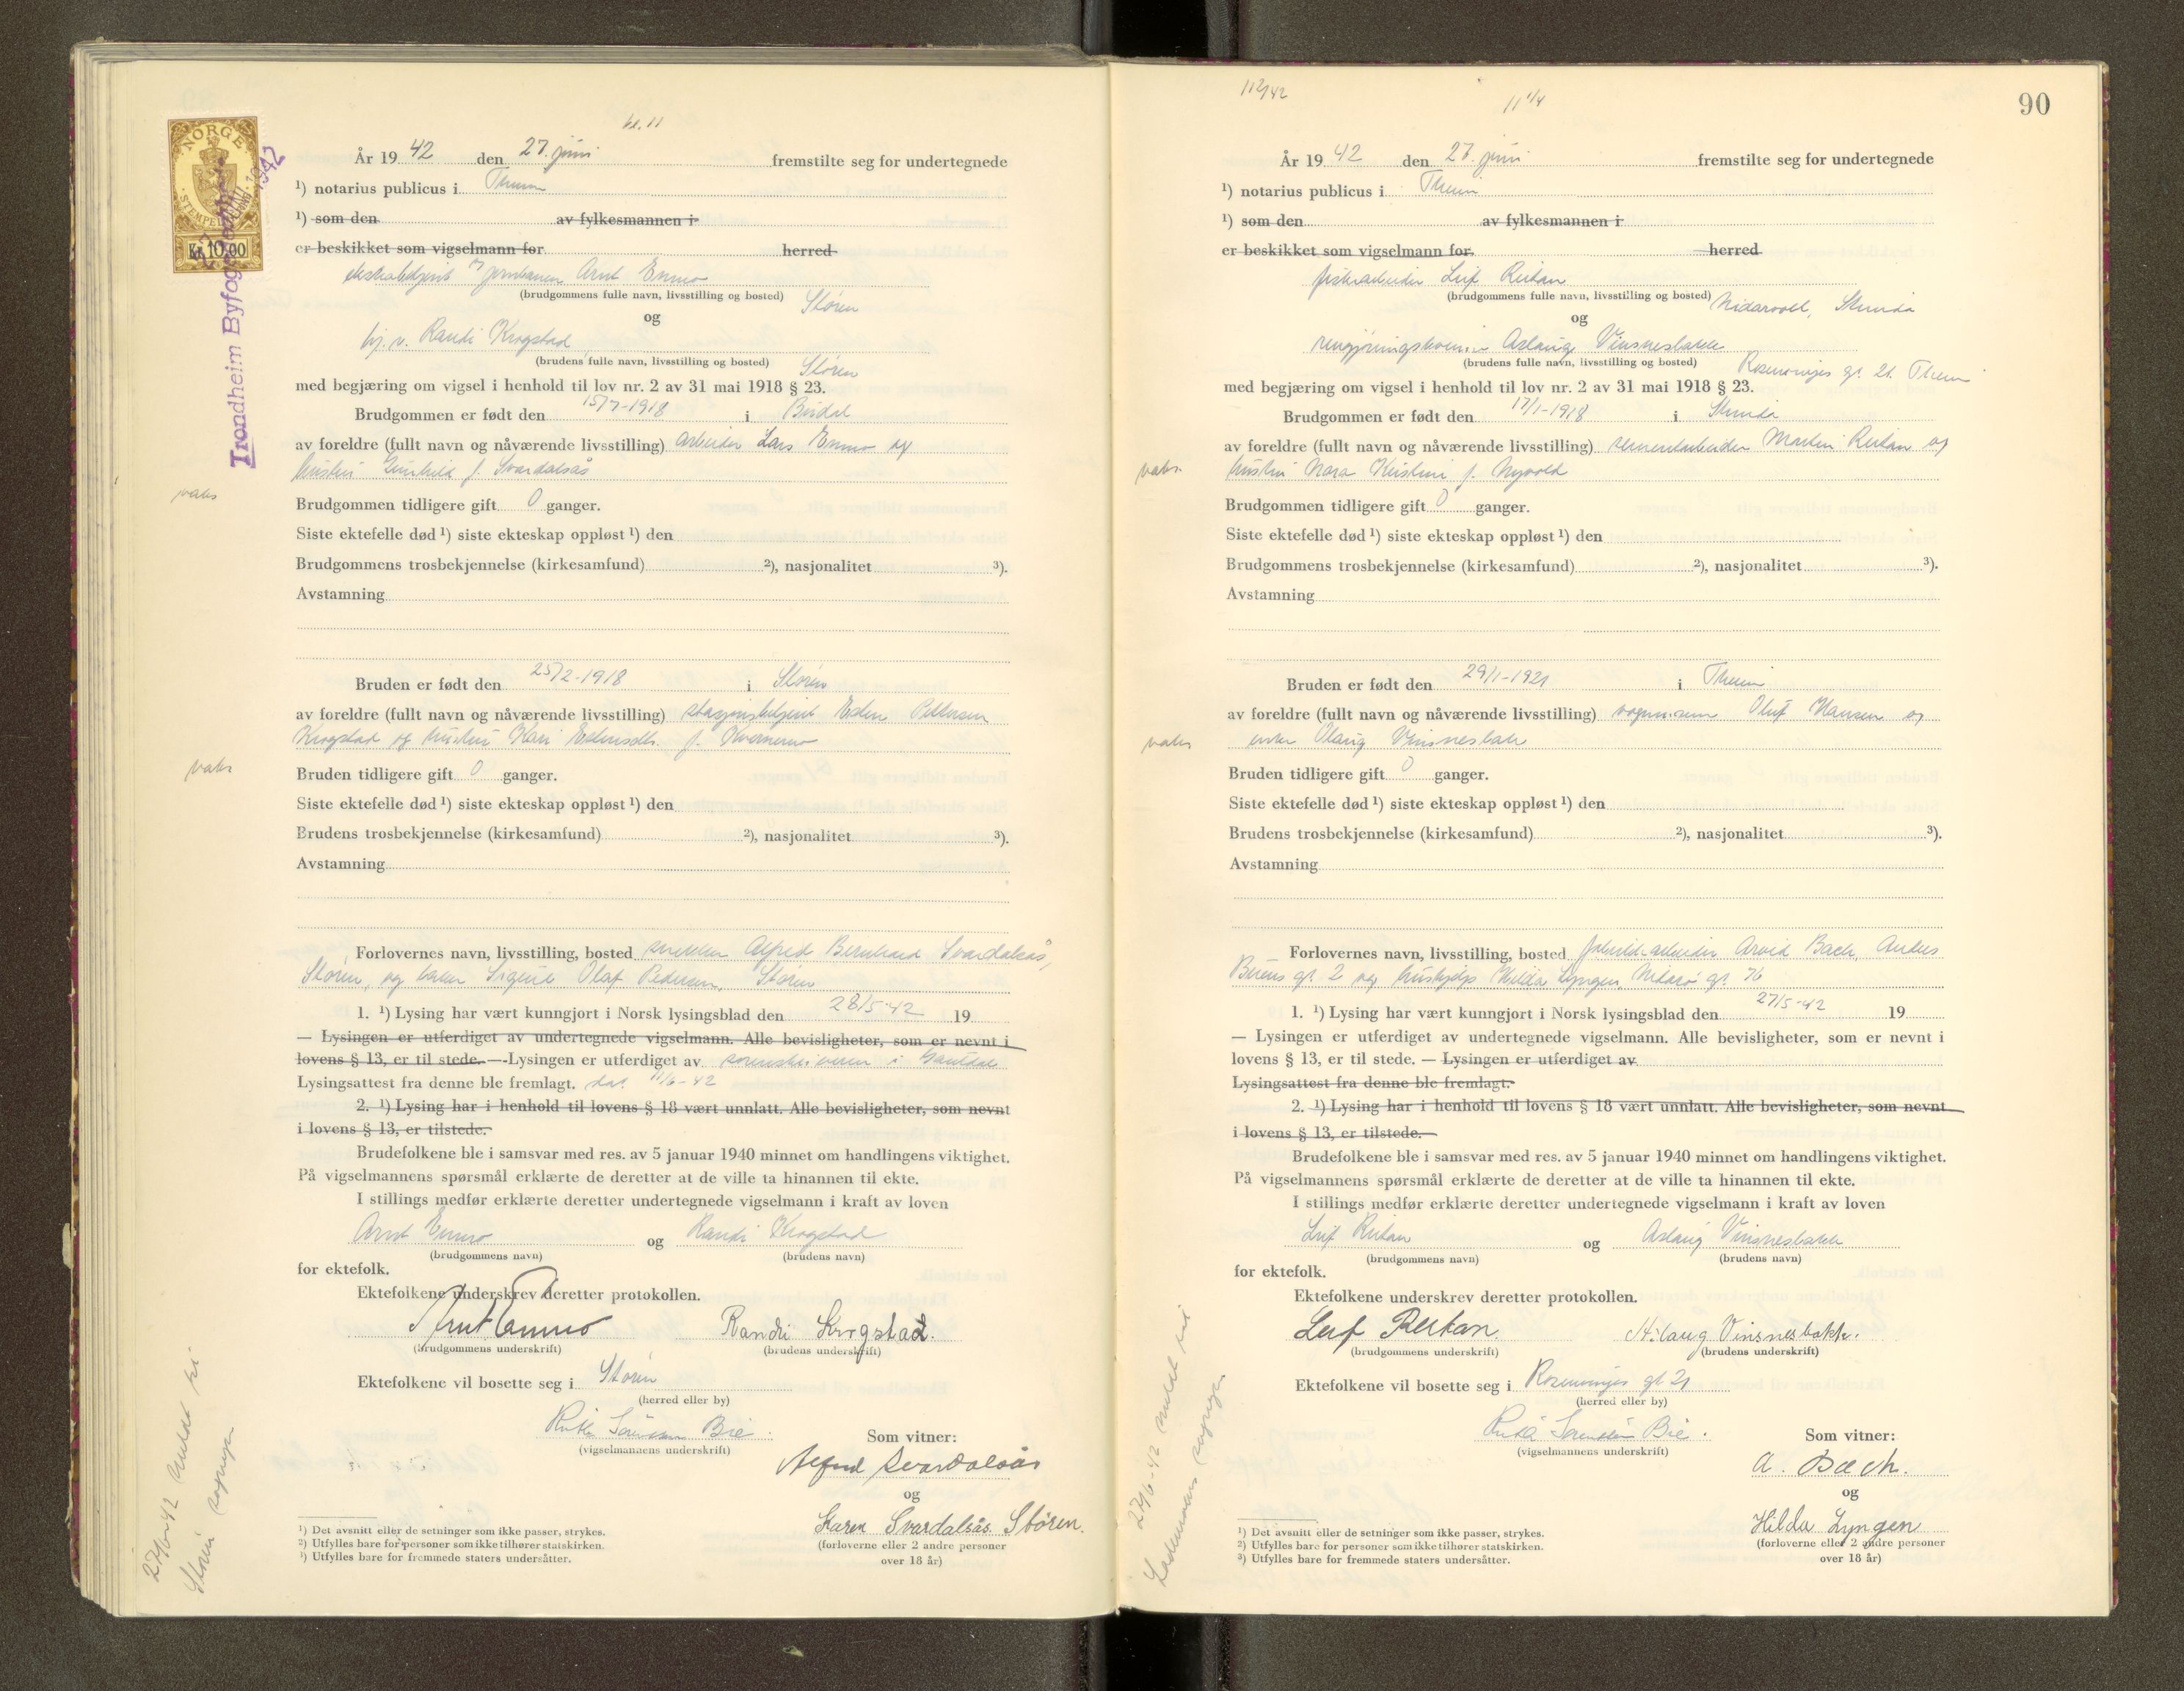 kl. 11
NORGE
STEMPEL
Kr. 10.00
Trondheim Byfogd
1942
År 19 42 den 27. juni fremstilte seg for undertegnede
¹) notarius publicus i Thrim
¹) som den av fylkesmannen i
er beskikket som vigselmann for herred
ekstrabetjent v/ jernbanen Arnt Enmo
(brudgommens fulle navn, livsstilling og bosted) Støren
og
hj.v. Randi Krogstad
(brudens fulle navn, livsstilling og bosted) Støren
med begjæring om vigsel i henhold til lov nr. 2 av 31 mai 1918 § 23.
Brudgommen er født den 15/7-1918 i Budal
av foreldre (fullt navn og nåværende livsstilling) arbeider Lars Enmo og
hustru Gunhild f. Svardalsås
vaks
Brudgommen tidligere gift 0 ganger.
Siste ektefelle død ¹) siste ekteskap oppløst ¹) den
Brudgommens trosbekjennelse (kirkesamfund) ²), nasjonalitet ³).
Avstamning
Bruden er født den 25/2-1918 i Støren
av foreldre (fullt navn og nåværende livsstilling) stasjonsbetjent Esten Pettersen
Krogstad og hustru Kari Estensdtr. f.
vaks
Bruden tidligere gift 0 ganger.
Siste ektefelle død ¹) siste ekteskap oppløst ¹) den
Brudens trosbekjennelse (kirkesamfund) ²), nasjonalitet ³).
Avstamning
Forlovernes navn, livsstilling, bosted snekker Alfred Bernhard Svardalsås,
Støren, og Sigurd Olaf Pedersen, Støren
1. ¹) Lysing har vært kunngjort i Norsk lysingsblad den 28/5-42 19
— Lysingen er utferdiget av undertegnede vigselmann. Alle bevisligheter, som er nevnt i
lovens § 13, er til stede. —-Lysingen er utferdiget av sorenskriveren i Gauldal
Lysingsattest fra denne ble fremlagt. dat. 11/6-42
2. ¹) Lysing har i henhold til lovens § 18 vært unnlatt. Alle bevisligheter, som nevnt
i lovens § 13, er tilstede.
Brudefolkene ble i samsvar med res. av 5 januar 1940 minnet om handlingens viktighet.
På vigselmannens spørsmål erklærte de deretter at de ville ta hinannen til ekte.
I stillings medfør erklærte deretter undertegnede vigselmann i kraft av loven
Arnt Enmo og Randi Krogstad
(brudgommens navn) (brudens navn)
for ektefolk.
Ektefolkene underskrev deretter protokollen.
Arnt Enmo Randi Krogstad.
(brudgommens underskrift) (brudens underskrift)
Ektefolkene vil bosette seg i Støren
(herred eller by)
Ruth Sørenssen Bie.
(vigselmannens underskrift)
Som vitner:
Alfred Svardalsås
og
Karen Svardalsås Støren.
(forloverne eller 2 andre personer
over 18 år)
¹) Det avsnitt eller de setninger som ikke passer, strykes.
²) Utfylles bare for personer som ikke tilhører statskirken.
³) Utfylles bare for fremmede staters undersåtter.
27/6-42 meldt til
Støren sogнepr.
112/42
11 1/4
90
År 19 42 den 27. juni fremstilte seg for undertegnede
¹) notarius publicus i Thrim
¹) som den av fylkesmannen i
er beskikket som vigselmann for herred
fiskearbeider Leif Reitan
(brudgommens fulle navn, livsstilling og bosted) Nidarvoll, Strinda
og
rengjøringskvinne Aslaug Vinsnesbakk
(brudens fulle navn, livsstilling og bosted) Rosenborgs gt. 21. Thrim
med begjæring om vigsel i henhold til lov nr. 2 av 31 mai 1918 § 23.
Brudgommen er født den 17/1-1918 i Strinda
av foreldre (fullt navn og nåværende livsstilling) sementarbeider Martin Reitan og
hustru Nora Kristine f. Nyvold
vaks.
Brudgommen tidligere gift 0 ganger.
Siste ektefelle død ¹) siste ekteskap oppløst ¹) den
Brudgommens trosbekjennelse (kirkesamfund) ²), nasjonalitet ³).
Avstamning
Bruden er født den 29/1-1921 i Thrim
av foreldre (fullt navn og nåværende livsstilling) vognmann Oluf Hansen og
enke Olaug Vinsnesbakk
vaks
Bruden tidligere gift 0 ganger.
Siste ektefelle død ¹) siste ekteskap oppløst ¹) den
Brudens trosbekjennelse (kirkesamfund) ²), nasjonalitet ³).
Avstamning
Forlovernes navn, livsstilling, bosted fabrikkarbeider Arvid Bach, Anders
Buens gt. 2 og hushjelp Hilda Lyngen, Nidarø gt. 76
1. ¹) Lysing har vært kunngjort i Norsk lysingsblad den 27/5-42 19
— Lysingen er utferdiget av undertegnede vigselmann. Alle bevisligheter, som er nevnt i
lovens § 13, er til stede. — Lysingen er utferdiget av
Lysingsattest fra denne ble fremlagt.
2. ¹) Lysing har i henhold til lovens § 18 vært unnlatt. Alle bevisligheter, som nevnt
i lovens § 13, er tilstede.
Brudefolkene ble i samsvar med res. av 5 januar 1940 minnet om handlingens viktighet.
På vigselmannens spørsmål erklærte de deretter at de ville ta hinannen til ekte.
I stillings medfør erklærte deretter undertegnede vigselmann i kraft av loven
Leif Reitan og Aslaug Vinsnesbakk
(brudgommens navn) (brudens navn)
for ektefolk.
Ektefolkene underskrev deretter protokollen.
Leif Reitan. Aslaug Vinsnesbakk.
(brudgommens underskrift) (brudens underskrift)
Ektefolkene vil bosette seg i Rosenborgs gt 21
(herred eller by)
Ruth Sørenssen Bie.
(vigselmannens underskrift)
Som vitner:
A. Bach.
og
Hilda Lyngen
(forloverne eller 2 andre personer
over 18 år)
¹) Det avsnitt eller de setninger som ikke passer, strykes.
²) Utfylles bare for personer som ikke tilhører statskirken.
³) Utfylles bare for fremmede staters undersåtter.
27/6-42 meldt til
Lademoen sognepr.